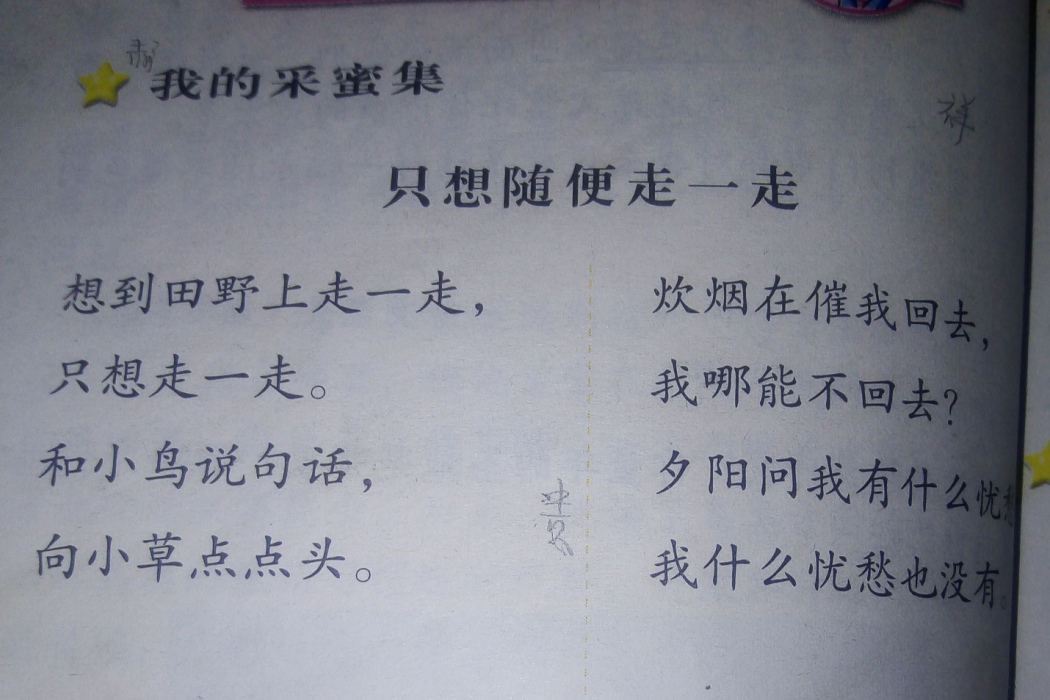 我的采蜜集
祥
只想随便走一走
想到田野上走一走，
只想走一走。
和小鸟说句话，
向小草点点头。
贵
炊烟在催我回去，
我哪能不回去？
夕阳问我有什么忧愁
我什么忧愁也没有。